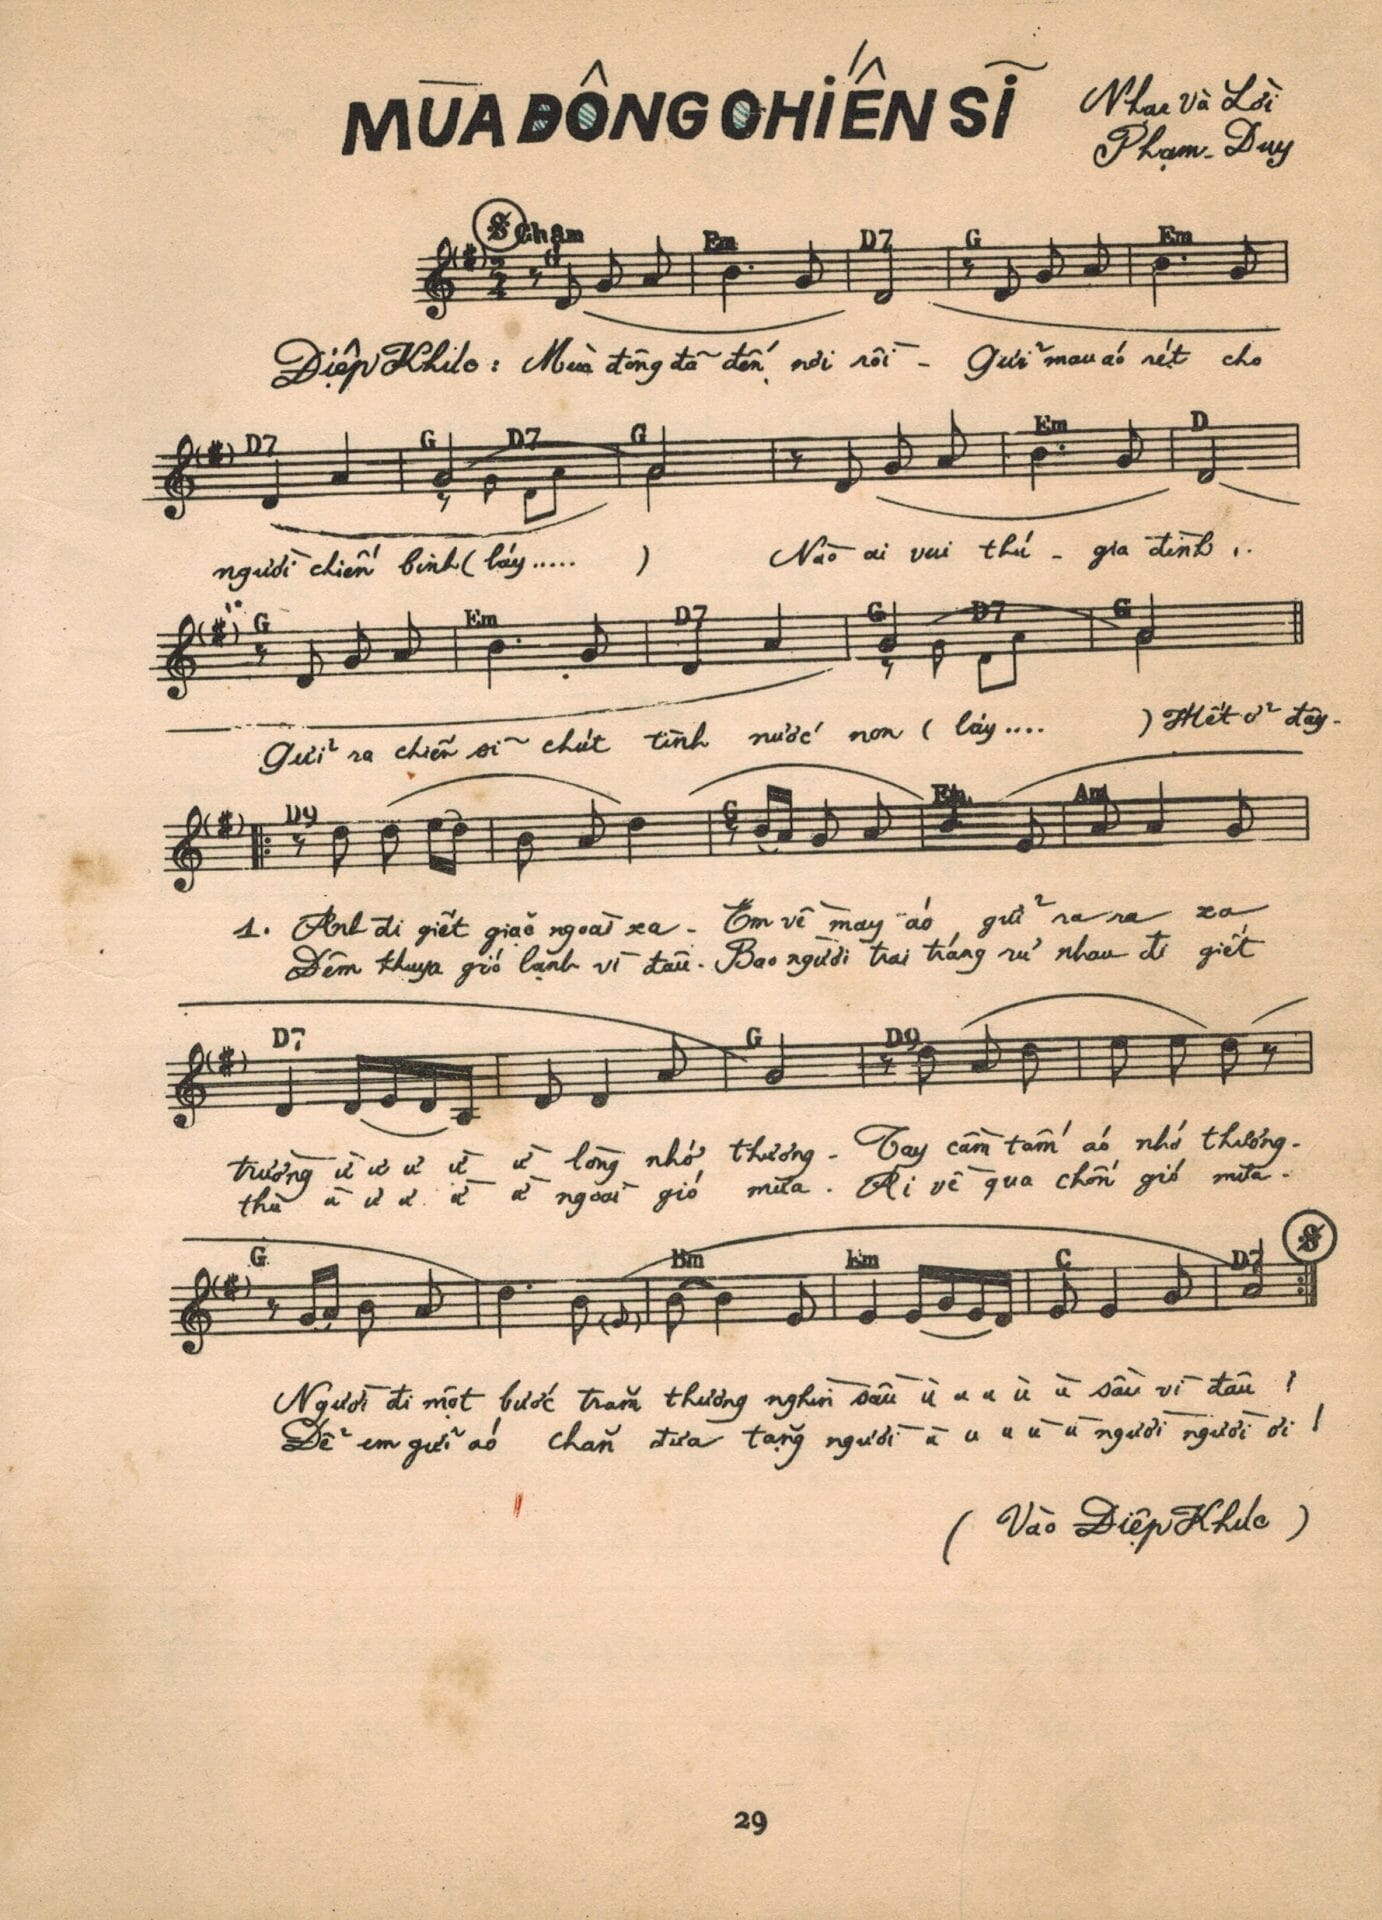 MÙA ĐÔNG CHIẾN SĨ
Nhạc và Lời
Phạm-Duy
Chậm
G Em D7 G Em
Điệp Khúc: Mùa đông đã đến nơi rồi - Gửi mau áo rét cho
D7 G D7 G Em D
người chiến binh (láy.....) Nào ai vui thú - gia đình..
G Em D7 G D7 G
Gửi ra chiến sĩ chút tình nước non (láy....) Hết ở đây-
D9 G Em Am
1. Anh đi giết giặc ngoài xa - Em về may áo gửi ra ra xa
Đêm khuya gió lạnh về đâu. Bao người trai tráng rủ nhau đi giết
D7 G D9
trường ừ ư ư ừ ừ lòng nhớ thương - Tay cầm tấm áo nhớ thương -
thù à ư ư ừ ừ ngoài gió mưa. Ai về qua chốn gió mưa -
G Bm Em C D7
Người đi một bước trăm thương nghìn sầu ù u u ù ù sầu vì đâu!
Để em gửi áo chăn đưa tặng người ù u u ù ù người người ơi!
(Vào Điệp Khúc)
29